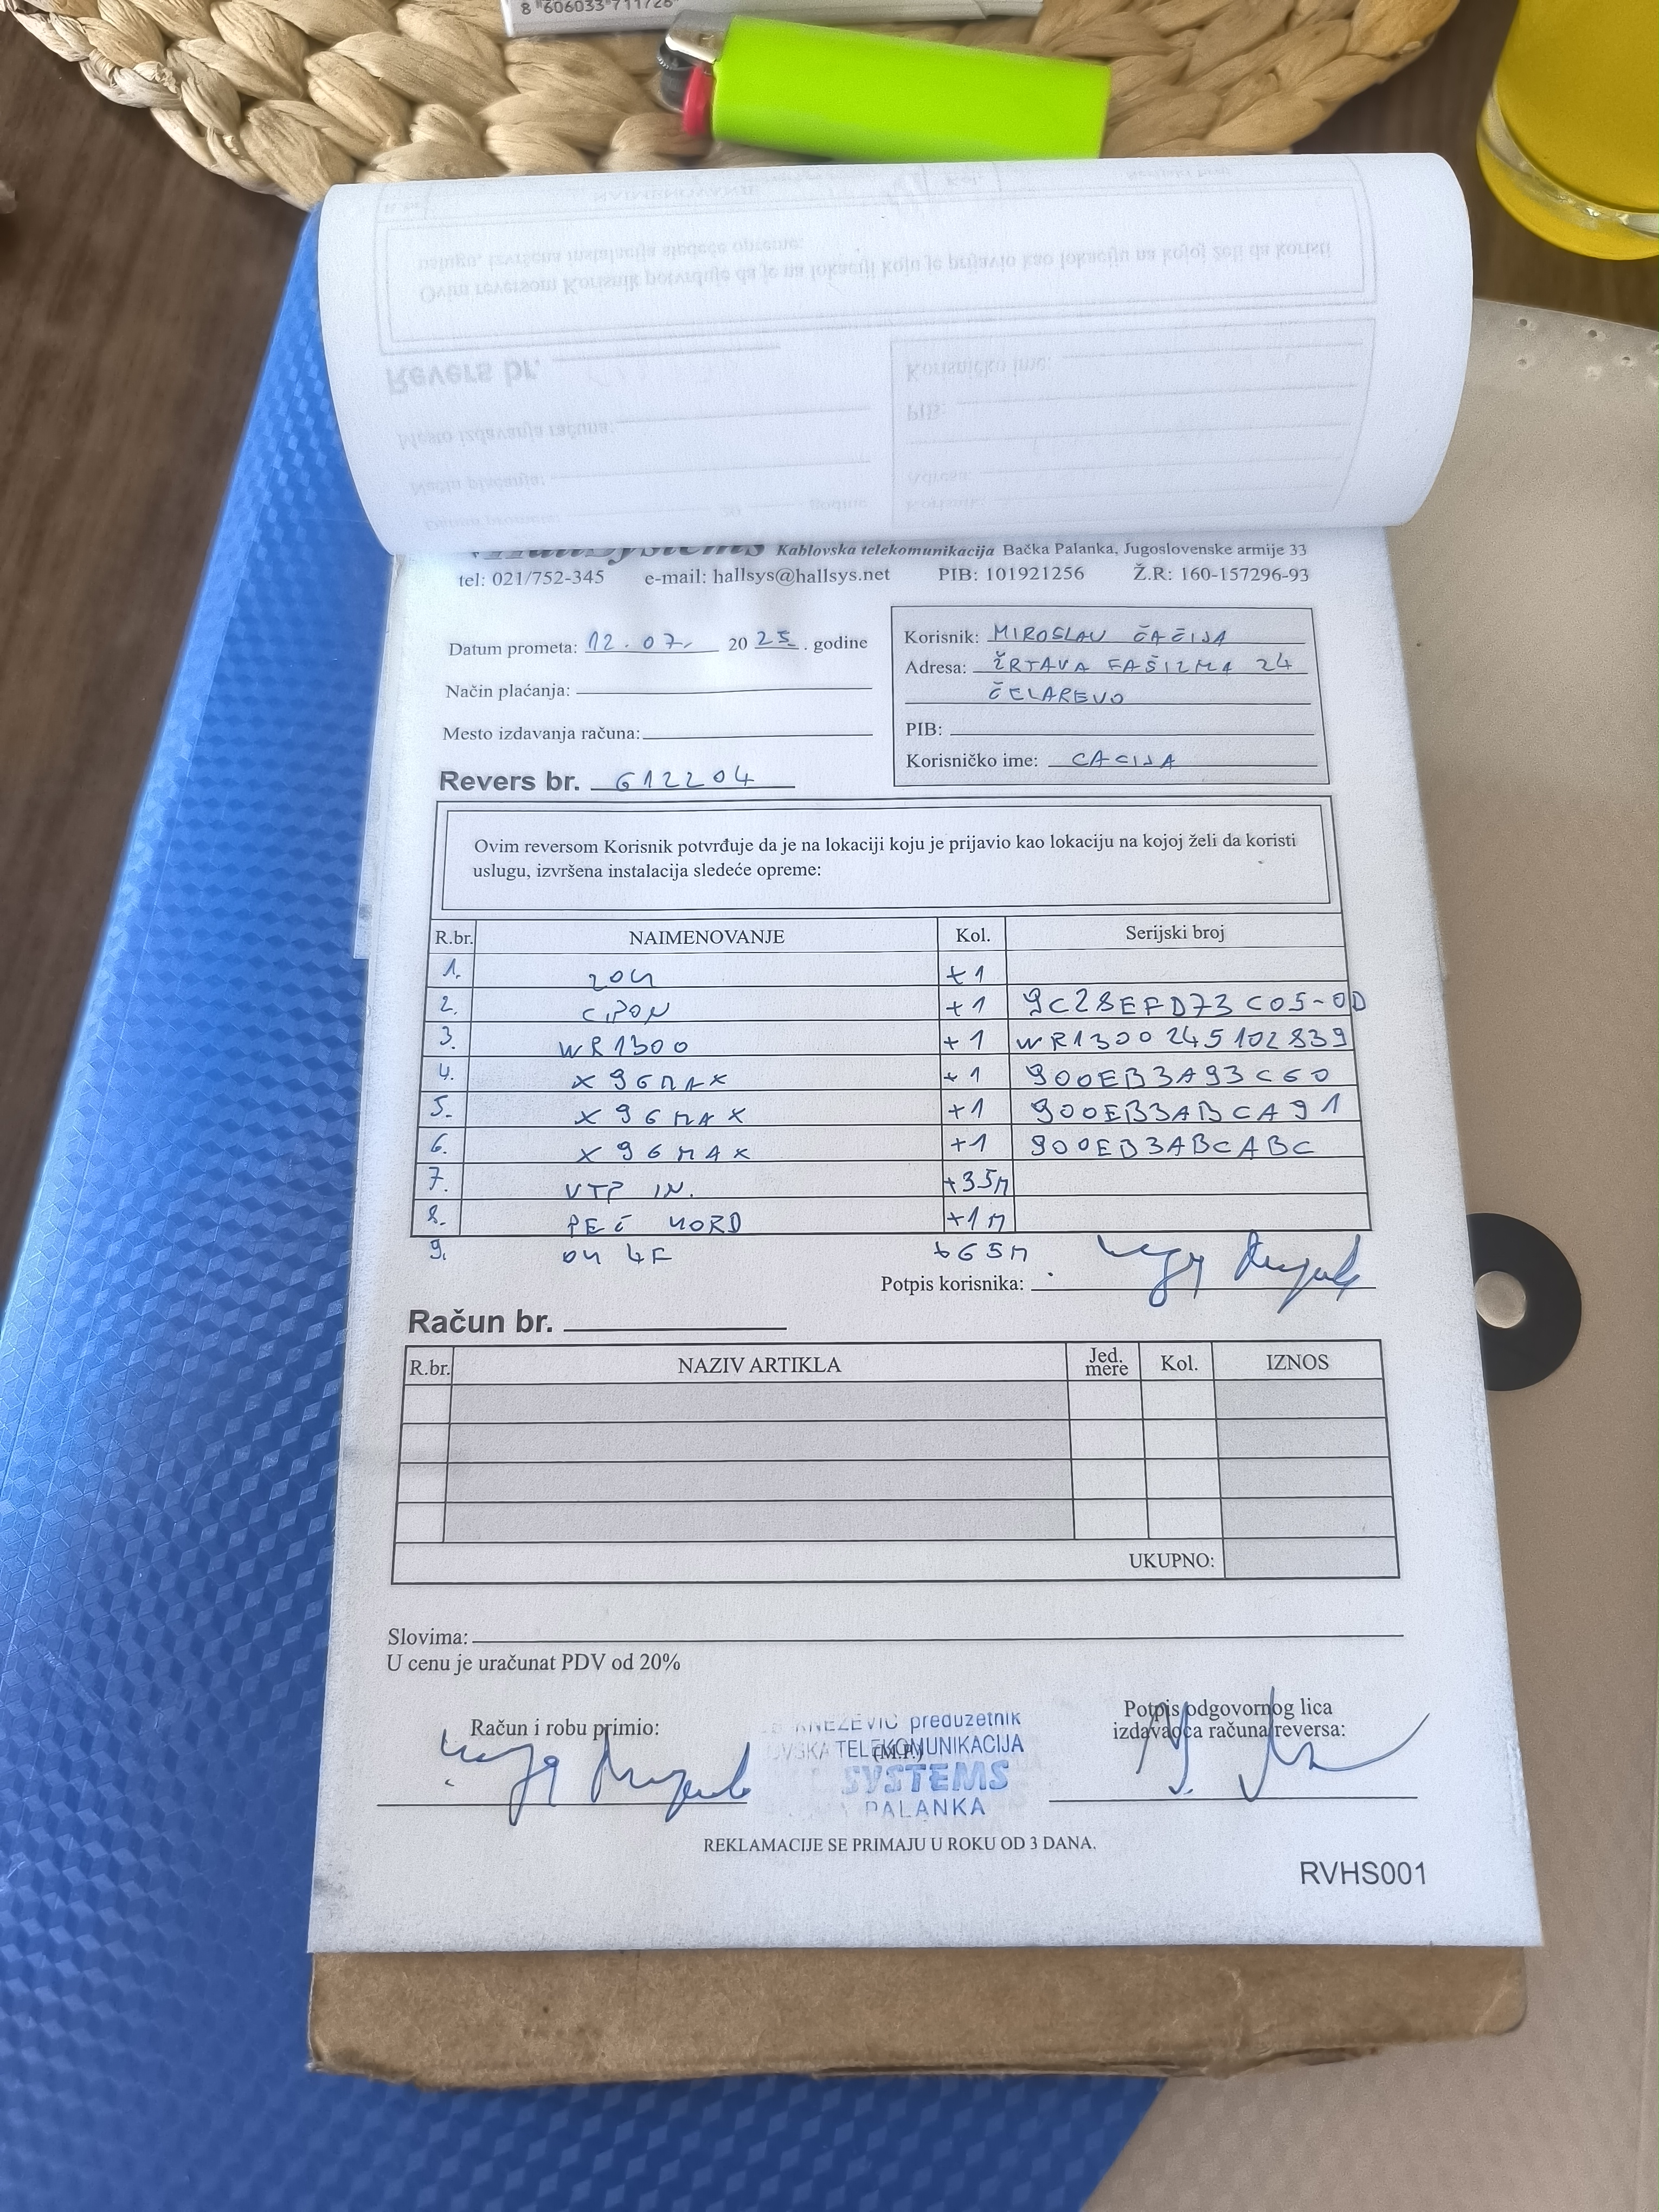 8 606033 711726
Kablovska telekomunikacija Bačka Palanka, Jugoslovenske armije 33
tel: 021/752-345 e-mail: hallsys@hallsys.net PIB: 101921256 Ž.R: 160-157296-93
Datum prometa: 12.07. 20 25. godine
Način plaćanja:
Mesto izdavanja računa:
Revers br. 612204
Korisnik: MIROSLAV ČAČIJA
Adresa: ŽRTAVA FAŠIZMA 24
ČELAREVO
PIB:
Korisničko ime: CACIJA
Ovim reversom Korisnik potvrđuje da je na lokaciji koju je prijavio kao lokaciju na kojoj želi da koristi
uslugu, izvršena instalacija sledeće opreme:
R.br. NAIMENOVANJE Kol. Serijski broj
1. +1
2. GPON +1 9C28EFD73C05-0D
3. WR1300 +1 WR1300245102839
4. X96MAX +1 900EB3A93C60
5. X96MAX +1 900EB3ABCA91
6. X96MAX +1 900EB3ABCABC
7. UTP IN. +35M
8. +1M
9. 4F +65M
Potpis korisnika:
Račun br.
R.br. NAZIV ARTIKLA Jed. mere Kol. IZNOS
UKUPNO:
Slovima:
U cenu je uračunat PDV od 20%
Račun i robu primio:
KNEZEVIĆ preduzetnik
TELEKOMUNIKACIJA
(M.P.)
SYSTEMS
PALANKA
Potpis odgovornog lica
izdavaoca računa/reversa:
REKLAMACIJE SE PRIMAJU U ROKU OD 3 DANA.
RVHS001